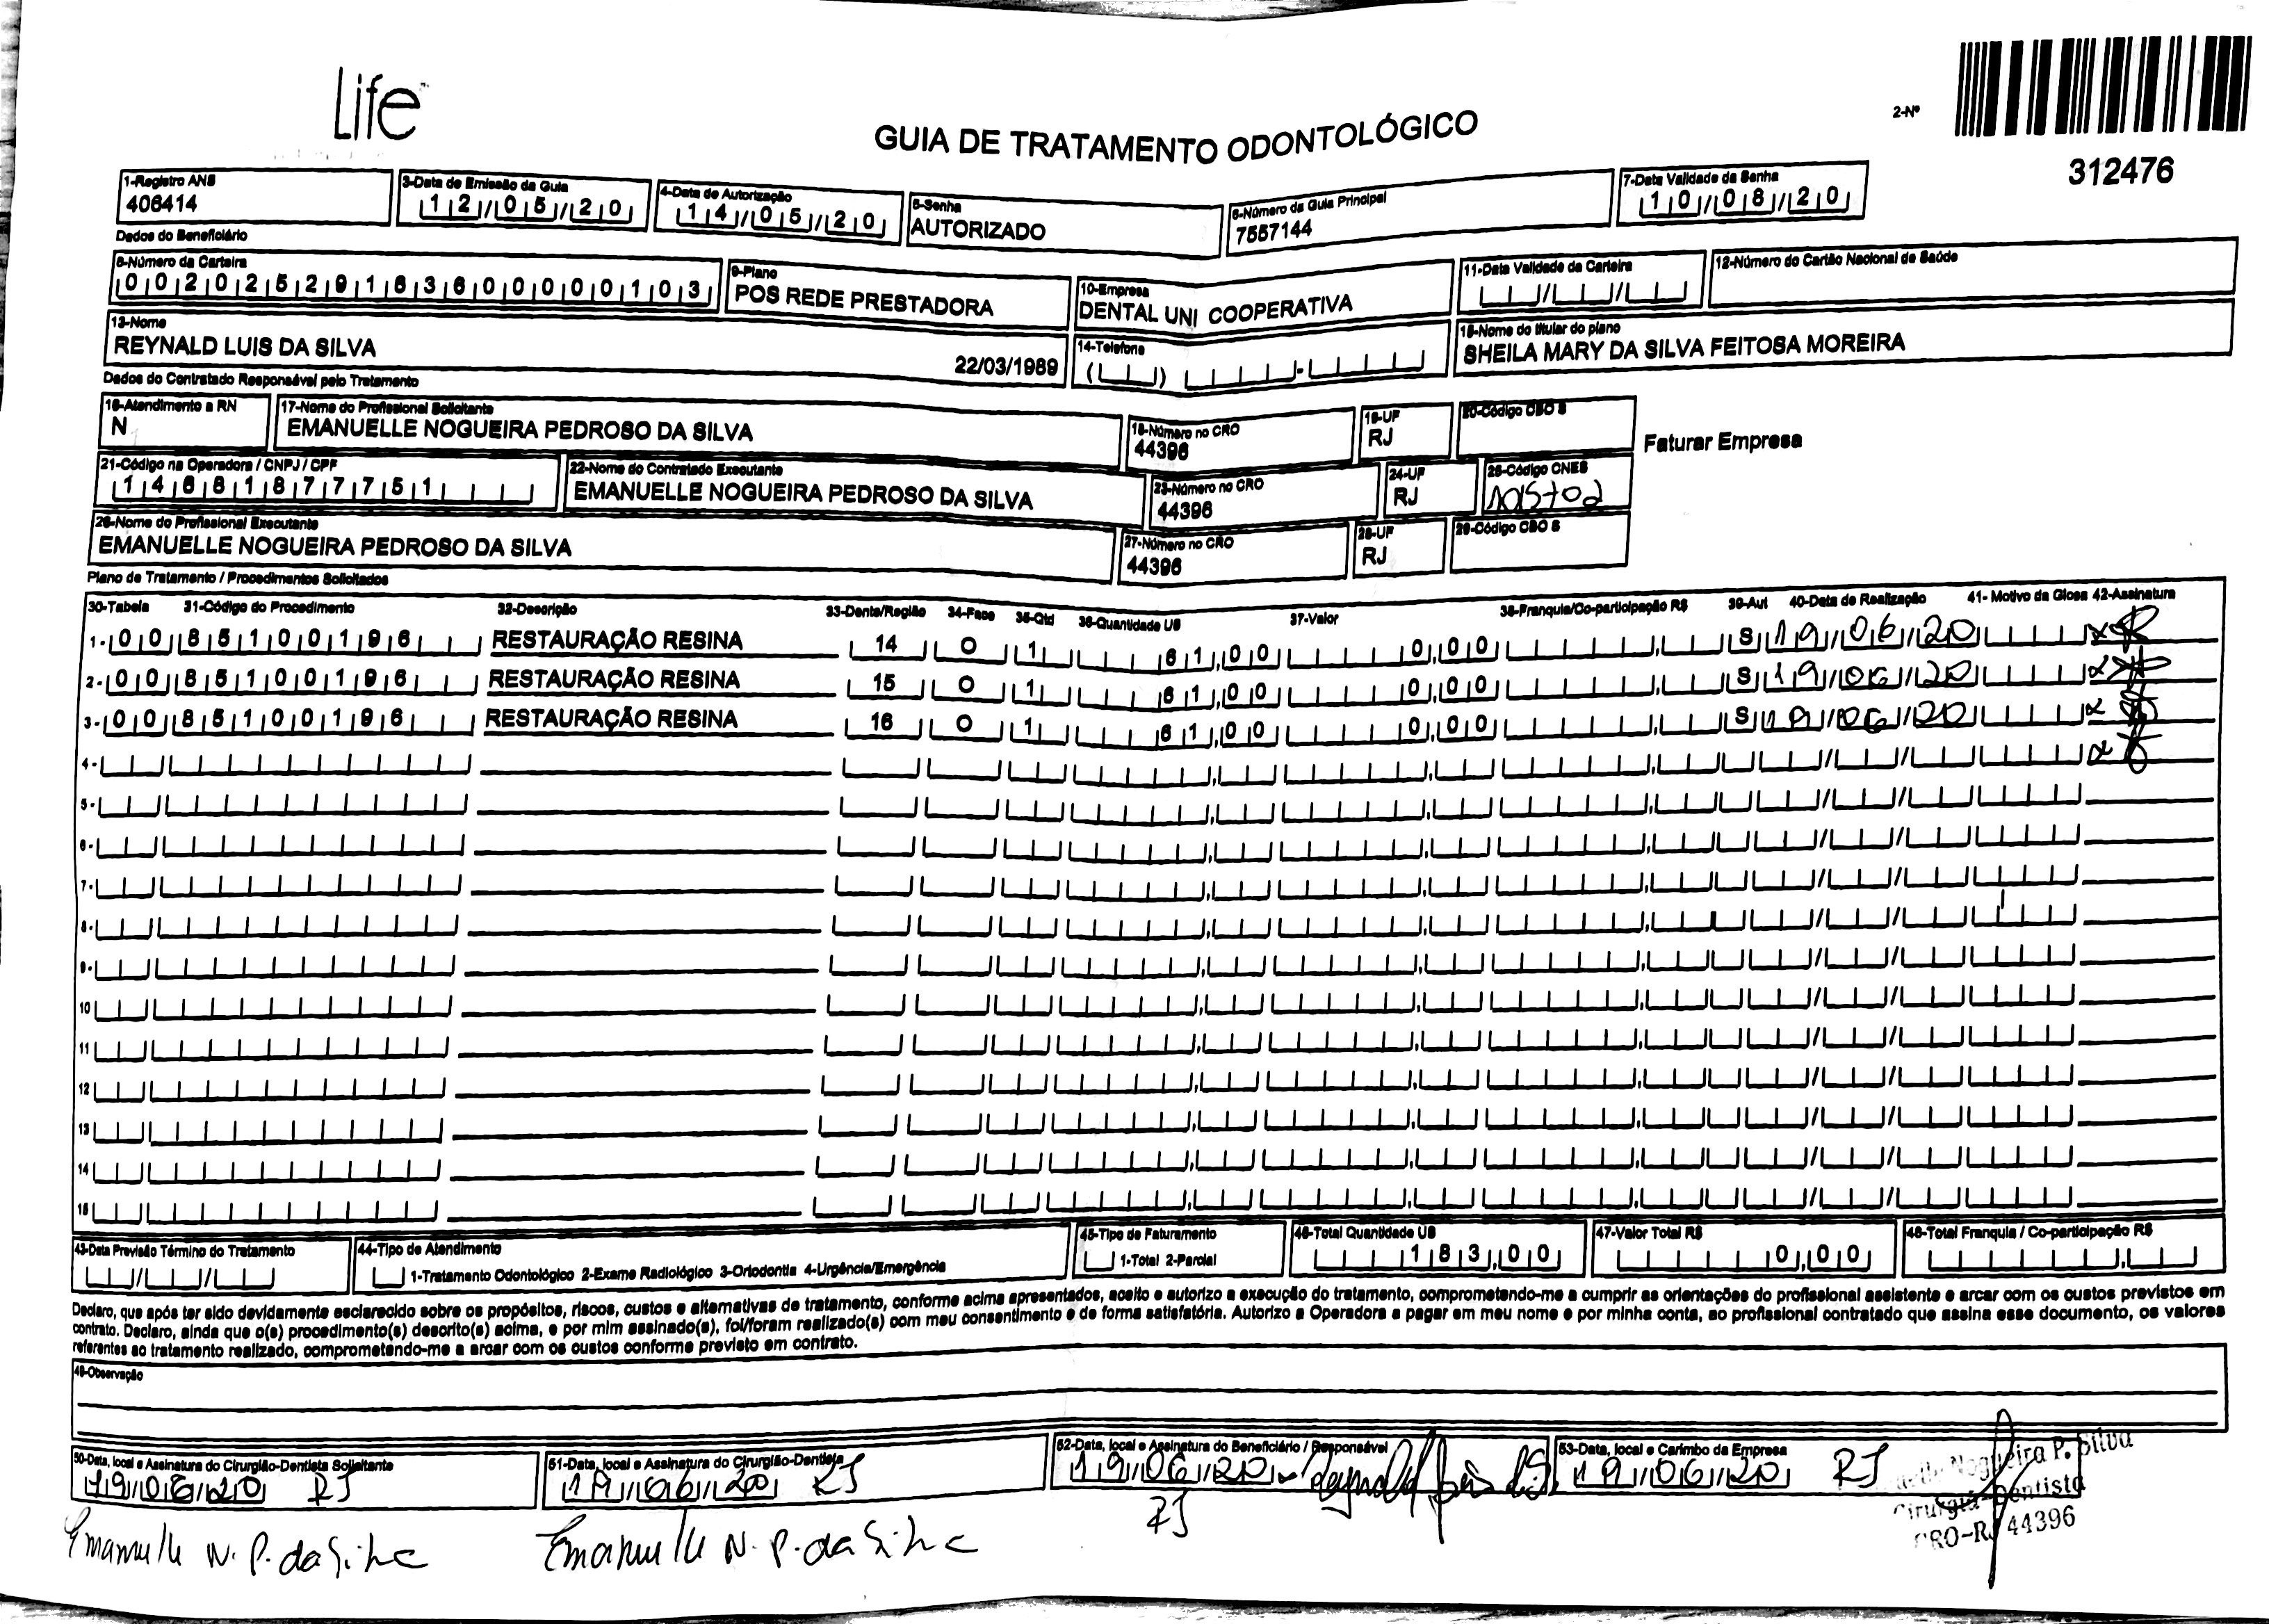 Life
GUIA DE TRATAMENTO ODONTOLÓGICO
2-Nº
312476
1-Registro ANS
406414
3-Data de Emissão da Guia
12/05/20
4-Data de Autorização
14/05/20
5-Senha
AUTORIZADO
6-Número da Guia Principal
7557144
7-Data Validade da Senha
10/08/20
Dados do Beneficiário
8-Número da Carteira
00202529163600000103
9-Plano
POS REDE PRESTADORA
10-Empresa
DENTAL UNI COOPERATIVA
11-Data Validade da Carteira
12-Número do Cartão Nacional de Saúde
13-Nome
REYNALD LUIS DA SILVA 22/03/1989
14-Telefone
15-Nome do titular do plano
SHEILA MARY DA SILVA FEITOSA MOREIRA
Dados do Contratado Responsável pelo Tratamento
16-Atendimento a RN
N
17-Nome do Profissional Solicitante
EMANUELLE NOGUEIRA PEDROSO DA SILVA
18-Número no CRO
44396
19-UF
RJ
20-Código CBO S
Faturar Empresa
21-Código na Operadora / CNPJ / CPF
14681877751
22-Nome do Contratado Executante
EMANUELLE NOGUEIRA PEDROSO DA SILVA
23-Número no CRO
44396
24-UF
RJ
25-Código CNES
26-Nome do Profissional Executante
EMANUELLE NOGUEIRA PEDROSO DA SILVA
27-Número no CRO
44396
28-UF
RJ
29-Código CBO S
Plano de Tratamento / Procedimentos Solicitados
30-Tabela 31-Código do Procedimento 32-Descrição 33-Dente/Região 34-Face 35-Qtd 36-Quantidade US 37-Valor 38-Franquia/Co-participação R$ 39-Aut 40-Data de Realização 41- Motivo da Glosa 42-Assinatura
1- 00 85100196 RESTAURAÇÃO RESINA 14 O 1 61,00 0,00 S 19/06/20
2- 00 85100196 RESTAURAÇÃO RESINA 15 O 1 61,00 0,00 S 19/06/20
3- 00 85100196 RESTAURAÇÃO RESINA 16 O 1 61,00 0,00 S 19/06/20
4-
5-
6-
7-
8-
9-
10
11
12
13
14
15
43-Data Previsão Término do Tratamento
44-Tipo de Atendimento
1-Tratamento Odontológico 2-Exame Radiológico 3-Ortodontia 4-Urgência/Emergência
45-Tipo de Faturamento
1-Total 2-Parcial
46-Total Quantidade US
183,00
47-Valor Total R$
0,00
48-Total Franquia / Co-participação R$
Declaro, que após ter sido devidamente esclarecido sobre os propósitos, riscos, custos e alternativas de tratamento, conforme acima apresentados, aceito e autorizo a execução do tratamento, comprometendo-me a cumprir as orientações do profissional assistente e arcar com os custos previstos em
contrato. Declaro, ainda que o(s) procedimento(s) descrito(s) acima, e por mim assinado(s), foi/foram realizado(s) com meu consentimento e de forma satisfatória. Autorizo a Operadora a pagar em meu nome e por minha conta, ao profissional contratado que assina esse documento, os valores
referentes ao tratamento realizado, comprometendo-me a arcar com os custos conforme previsto em contrato.
49-Observação
50-Data, local e Assinatura do Cirurgião-Dentista Solicitante
19/06/20 RJ
Emanuelle N. P. da Silva
51-Data, local e Assinatura do Cirurgião-Dentista
19/06/20 RJ
Emanuelle N. P. da Silva
52-Data, local e Assinatura do Beneficiário / Responsável
19/06/20
RJ
53-Data, local e Carimbo da Empresa
19/06/20 RJ
Nogueira P. Silva
Cirurgiã-Dentista
CRO-RJ 44396